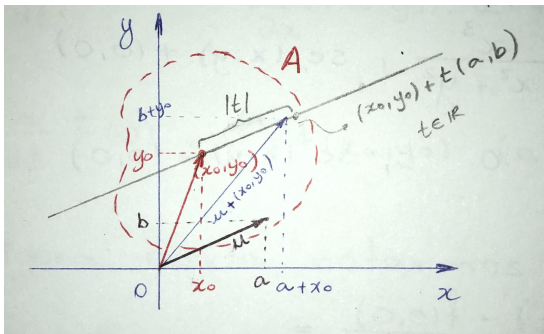 y
A
|t|
b+y₀
(x₀,y₀) + t(a,b)
t∈ℝ
y₀
(x₀,y₀)
u+(x₀,y₀)
b
u
0
x₀
a
a+x₀
x